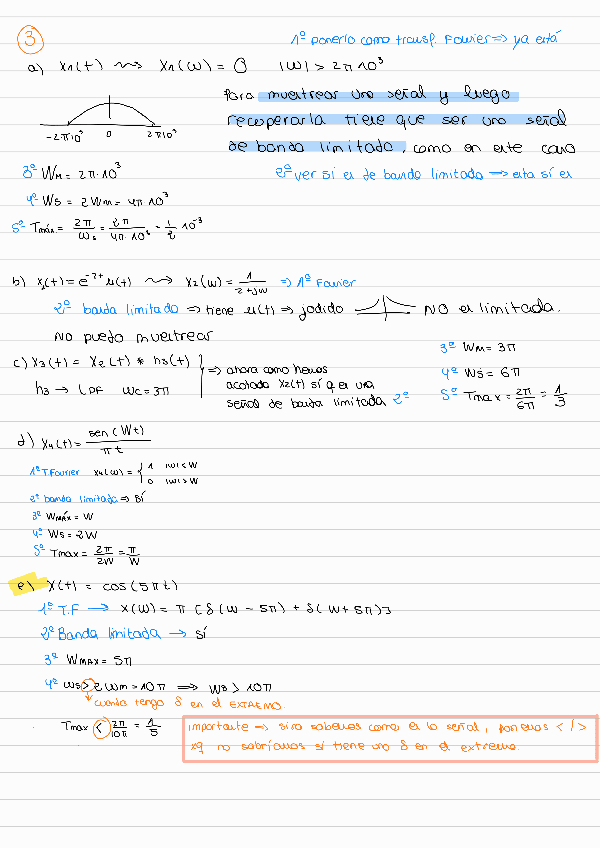 3
1º ponerlo como transf. Fourier ⇒ ya está
a) X1(t) ⇝ X1(ω) = 0 |ω| > 2π10³
-2π10³ 0 2π10³
Para muestrear una señal y luego
recuperarla tiene que ser una señal
de banda limitada, como en este caso
2º ver si es de banda limitada → esta sí es
3º WM = 2π·10³
4º Ws = 2Wm = 4π10³
5º Tmáx = 2π/ωs = 2π/4π·10³ = 1/2 10⁻³
b) x2(t) = e^-2t u(t) ⇝ X2(ω) = 1/2+jω ⇒ 1º Fourier
2º banda limitada ⇒ tiene u(t) ⇒ jodido NO es limitada.
No puedo muestrear
c) X3(t) = X2(t) * h3(t)
h3 → LPF ωc = 3π
⇒ ahora como hemos
acotado X2(t) sí q es una
señal de banda limitada 2º
3º WM = 3π
4º Ws = 6π
5º Tmax = 2π/6π = 1/3
d) X4(t) = sen(Wt)/πt
1º T.Fourier X4(ω) = { 1 |ω| < W
0 |ω| > W
2º banda limitada ⇒ sí
3º WMÁX = W
4º Ws = 2W
5º Tmax = 2π/2W = π/W
e) X(t) = cos(5πt)
1º T.F → X(ω) = π [δ(ω - 5π) + δ(ω + 5π)]
2º Banda limitada → sí
3º WMAX = 5π
4º ωs > 2ωm = 10π ⇒ Ws > 10π
cuando tengo δ en el EXTREMO.
Tmax < 2π/10π = 1/5
importante → si no sabemos como es la señal, ponemos < / >
xq no sabríamos si tiene una δ en el extremo.